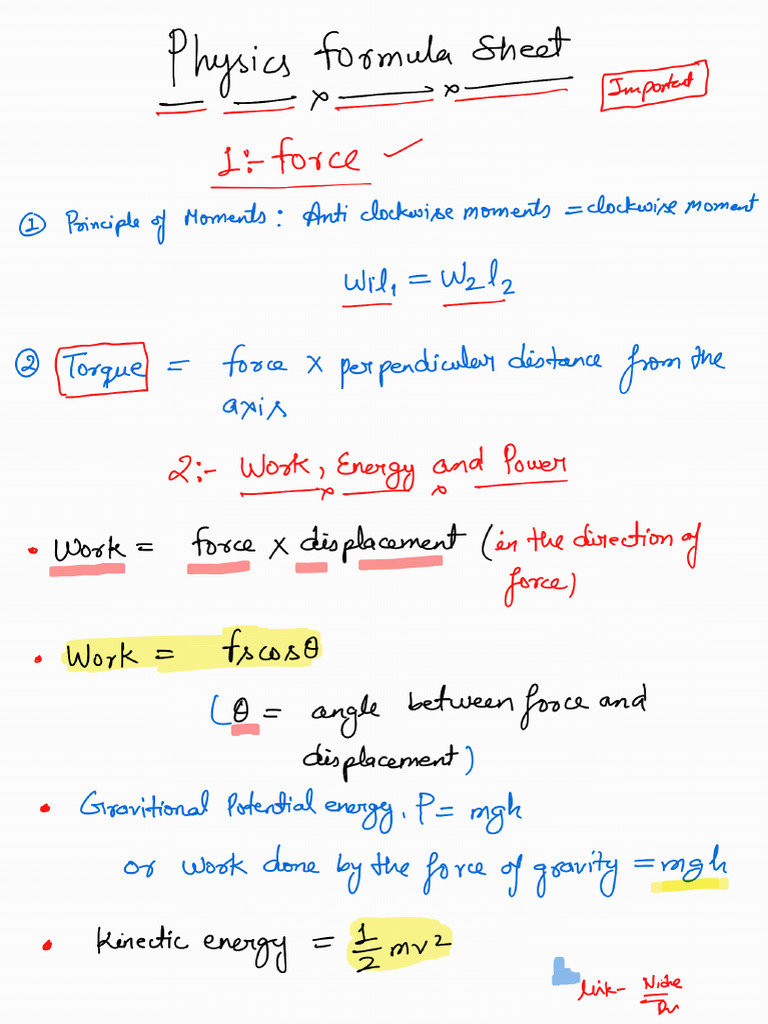 Physics formula Sheet
Important
1:- force ✓
① Principle of Moments: Anti clockwise moments = clockwise moment
W1l₁ = W₂l₂
② Torque = force × perpendicular distance from the
axis
2:- Work, Energy and Power
• Work = force × displacement (in the direction of
force)
• Work = fscosθ
(θ = angle between force and
displacement)
• Gravitional Potential energy, P = mgh
or work done by the force of gravity = mgh
• Kinectic energy = 1/2 mv²
link-